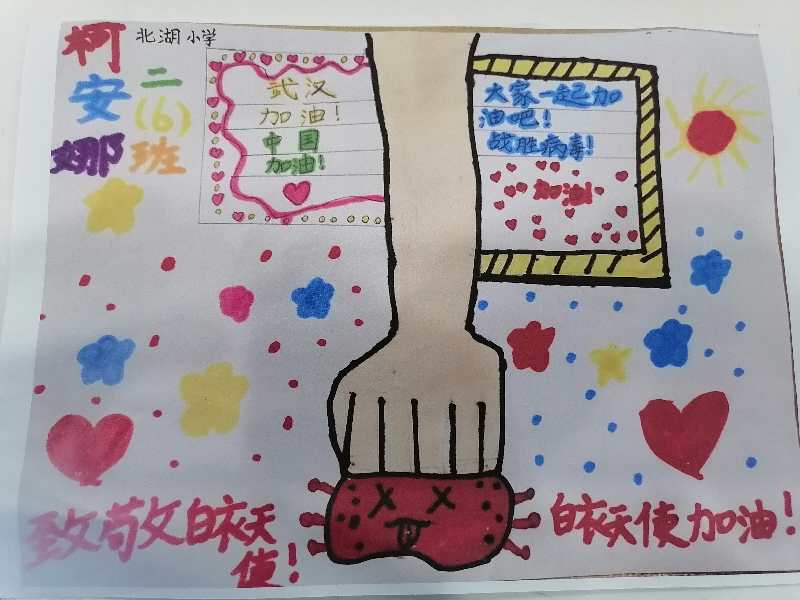 柯安娜
北湖小学
二(6)班
武汉
加油!
中国
加油!
大家一起加
油吧!
战胜病毒!
加油!
致敬白衣天
使!
白衣天使加油!